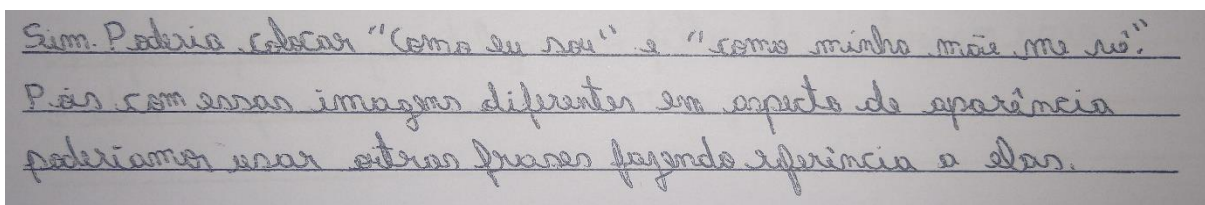 Sim. Poderia colocar "Como eu sou" e "como minha mãe me vê".
Pois com essas imagens diferentes em aspecto de aparência
poderíamos usar outras frases fazendo referência a elas.